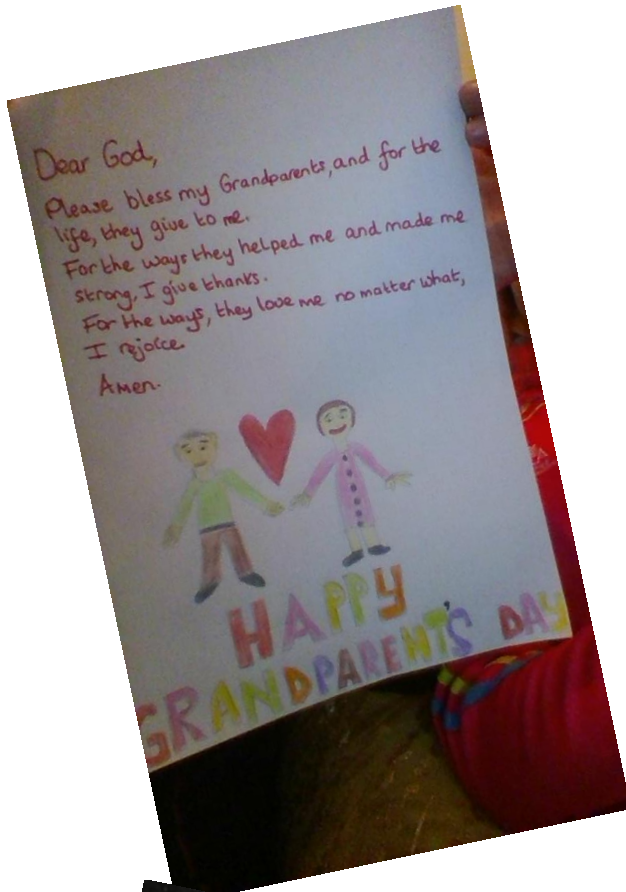 Dear God,
Please bless my Grandparents, and for the
life, they give to me.
For the ways they helped me and made me
strong, I give thanks.
For the ways, they love me no matter what,
I rejoice.
Amen.
HAPPY
GRANDPARENT'S DAY